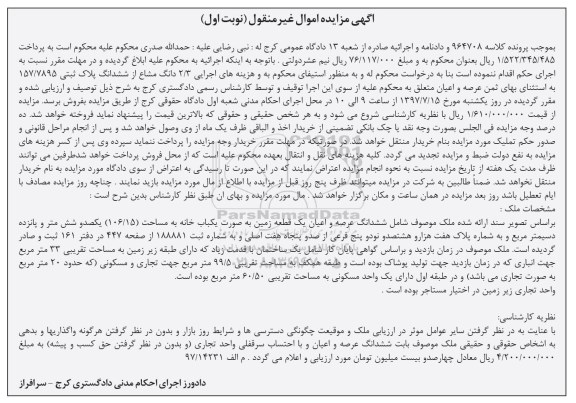 آگهی مزایده اموال غیرمنقول (نوبت اول)
بموجب پرونده کلاسه 964708 و دادنامه و اجرائیه صادره از شعبه 13 دادگاه عمومی کرج له : نبی رضایی علیه : حمدالله صدری محکوم علیه محکوم است به پرداخت
1/522/345/485 ریال بعنوان محکوم به و مبلغ 76/117/000 ریال نیم عشردولتی . باتوجه به اینکه اجرائیه به محکوم علیه ابلاغ گردیده و در مهلت مقرر نسبت به
اجرای حکم اقدام ننموده است بنا به درخواست محکوم له و به منظور استیفای محکوم به و هزینه های اجرایی 2/3 دانگ مشاع از ششدانگ پلاک ثبتی 157/7895
به استثنای بهای ثمن عرصه و اعیان متعلق به محکوم علیه از سوی این اجرا توقیف و توسط کارشناس رسمی دادگستری کرج به شرح ذیل توصیف و ارزیابی شده و
مقرر گردیده در روز یکشنبه مورخ 1397/7/15 از ساعت 9 الی 10 در محل اجرای احکام مدنی شعبه اول دادگاه حقوقی کرج از طریق مزایده بفروش برسد. مزایده
از قیمت 1/610/000/000 ریال با نظریه کارشناسی شروع می شود و به هر شخص حقیقی و حقوقی که بالاترین قیمت را پیشنهاد نماید فروخته خواهد شد. ده
درصد وجه مزایده فی المجلس بصورت وجه نقد یا چک بانکی تضمینی از خریدار اخذ و الباقی ظرف یک ماه از وی وصول خواهد شد و پس از انجام مراحل قانونی و
صدور حکم تملیک مورد مزایده بنام خریدار منتقل خواهد شد در صورتیکه در مهلت مقرر خریدار وجه مزایده را پرداخت ننماید سپرده وی پس از کسر هزینه های
مزایده به نفع دولت ضبط و مزایده تجدید می گردد. کلیه هزینه های نقل و انتقال بعهده محکوم علیه است که از محل فروش پرداخت خواهد شدطرفین می توانند
ظرف مدت یک هفته از تاریخ مزایده نسبت به نحوه انجام مزایده اعتراض نمایند که در این صورت تا رسیدگی به اعتراض از سوی دادگاه مورد مزایده به نام خریدار
منتقل نخواهد شد. ضمناً طالبین به شرکت در مزایده میتوانند ظرف پنج روز قبل از مزایده با اطلاع از مال مورد مزایده بازید نمایند . چناچه روز مزایده مصادف با
ایام تعطیل باشد روز بعد مزایده در همان ساعت و مکان برگزار خواهد شد . مال مورد مزایده و بهای آن طبق نظر کارشناس بدین شرح است :
مشخصات ملک :
براساس تصویر سند ارائه شده ملک موصوف شامل ششدانگ عرصه و اعیان یک قطعه زمین به صورت یکباب خانه به مساحت (106/15) یکصدو شش متر و پانزده
دسیمتر مربع و به شماره پلاک هفت هزارو هشتصدو نودو پنج فرعی از صدو پنجاه هفت اصلی و به شماره ثبت 188881 از صفحه 447 در دفتر 161 ثبت و صادر
گردیده است. ملک موصوف در زمان بازدید و براساس گواهی پایان کار شامل یک ساختمان با قدمت زیاد که دارای طبقه زیر زمین به مساحت تقریبی 33 متر مربع
جهت انباری که در زمان بازدید جهت تولید پوشاک بوده است و طبقه همکف به مساحت تقریبی 99/5 متر مربع جهت تجاری و مسکونی (که حدود 20 متر مربع
به صورت تجاری می باشد) و در طبقه اول دارای یک واحد مسکونی به مساحت تقریبی 60/50 متر مربع بوده است.
واحد تجاری زیر زمین در اختیار مستاجر بوده است .
نظریه کارشناسی:
با عنایت به در نظر گرفتن سایر عوامل موثر در ارزیابی ملک و موقیعت چگونگی دسترسی ها و شرایط روز بازار و بدون در نظر گرفتن هرگونه واگذاریها و بدهی
به اشخاص حقوقی و حقیقی ملک موصوف بابت ششدانگ عرصه و اعیان و با احتساب سرقفلی واحد تجاری (و بدون در نظر گرفتن حق کسب و پیشه) به مبلغ
4/200/000/000 ریال معادل چهارصدو بیست میلیون تومان مورد ارزیابی و اعلام می گردد . م الف 97/14231
دادورز اجرای احکام مدنی دادگستری کرج – سرافراز